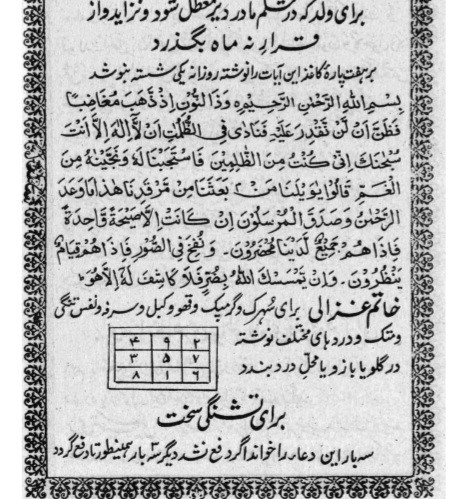 برای ولد که در شکم مادر دیر معطل شود و نزاید و از
قرار نه ماه بگذرد
بر هفت پارهٔ کاغذ این آیات را نوشته روزانه یکی شسته بنوشد
بِسْمِ اللهِ الرَّحْمٰنِ الرَّحِيْمِ وَذَا النُّوْنِ اِذْ ذَهَبَ مُغَاضِبًا
فَظَنَّ اَنْ لَنْ نَقْدِرَ عَلَيْهِ فَنَادٰى فِى الظُّلُمٰتِ اَنْ لَا اِلٰهَ اِلَّا اَنْتَ
سُبْحٰنَكَ اِنِّىْ كُنْتُ مِنَ الظّٰلِمِيْنَ فَاسْتَجَبْنَا لَهُ وَنَجَّيْنٰهُ مِنَ
الْغَمِّ قَالُوْا يٰوَيْلَنَا مَنْ بَعَثَنَا مِنْ مَّرْقَدِنَا هٰذَا مَا وَعَدَ
الرَّحْمٰنُ وَصَدَقَ الْمُرْسَلُوْنَ اِنْ كَانَتْ اِلَّا صَيْحَةً وَّاحِدَةً
فَاِذَا هُمْ جَمِيْعٌ لَّدَيْنَا مُحْضَرُوْنَ۔ وَنُفِخَ فِى الصُّوْرِ فَاِذَا هُمْ قِيَامٌ
يَنْظُرُوْنَ۔ وَاِنْ يَمْسَسْكَ اللهُ بِضُرٍّ فَلَا كَاشِفَ لَهُ اِلَّا هُوَ
خاتم غزالی برای شهرک و گرمیک و قصو و کبل و سرفه و نفس تنگی
و دردهای مختلف نوشته
در گلو یا بازو یا محل درد بندد
۴ ۹ ۲
۳ ۵ ۷
۸ ۱ ۶
برای تشنگی سخت
سه بار این دعاء را خواند اگر دفع نشد دیگر سه بار بهمینطور تا دفع گردد